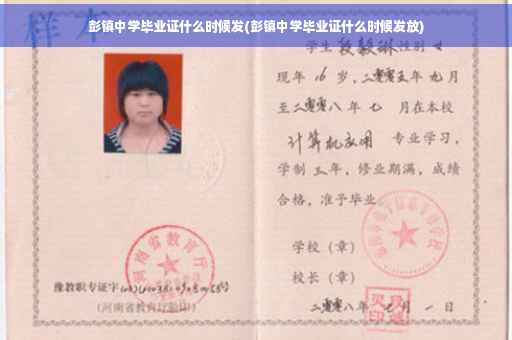 彭镇中学毕业证什么时候发(彭镇中学毕业证什么时候发放)
样本
学生段毅琳性别女
现年16岁，二零零五年九月
至二零零八年七月在本校
计算机应用 专业学习，
学制三年，修业期满，成绩
合格，准予毕业。
学校（章）
校长（章）
二零零八年 月一日
河南省教育厅
豫教职专证字
(河南省教育厅验印)